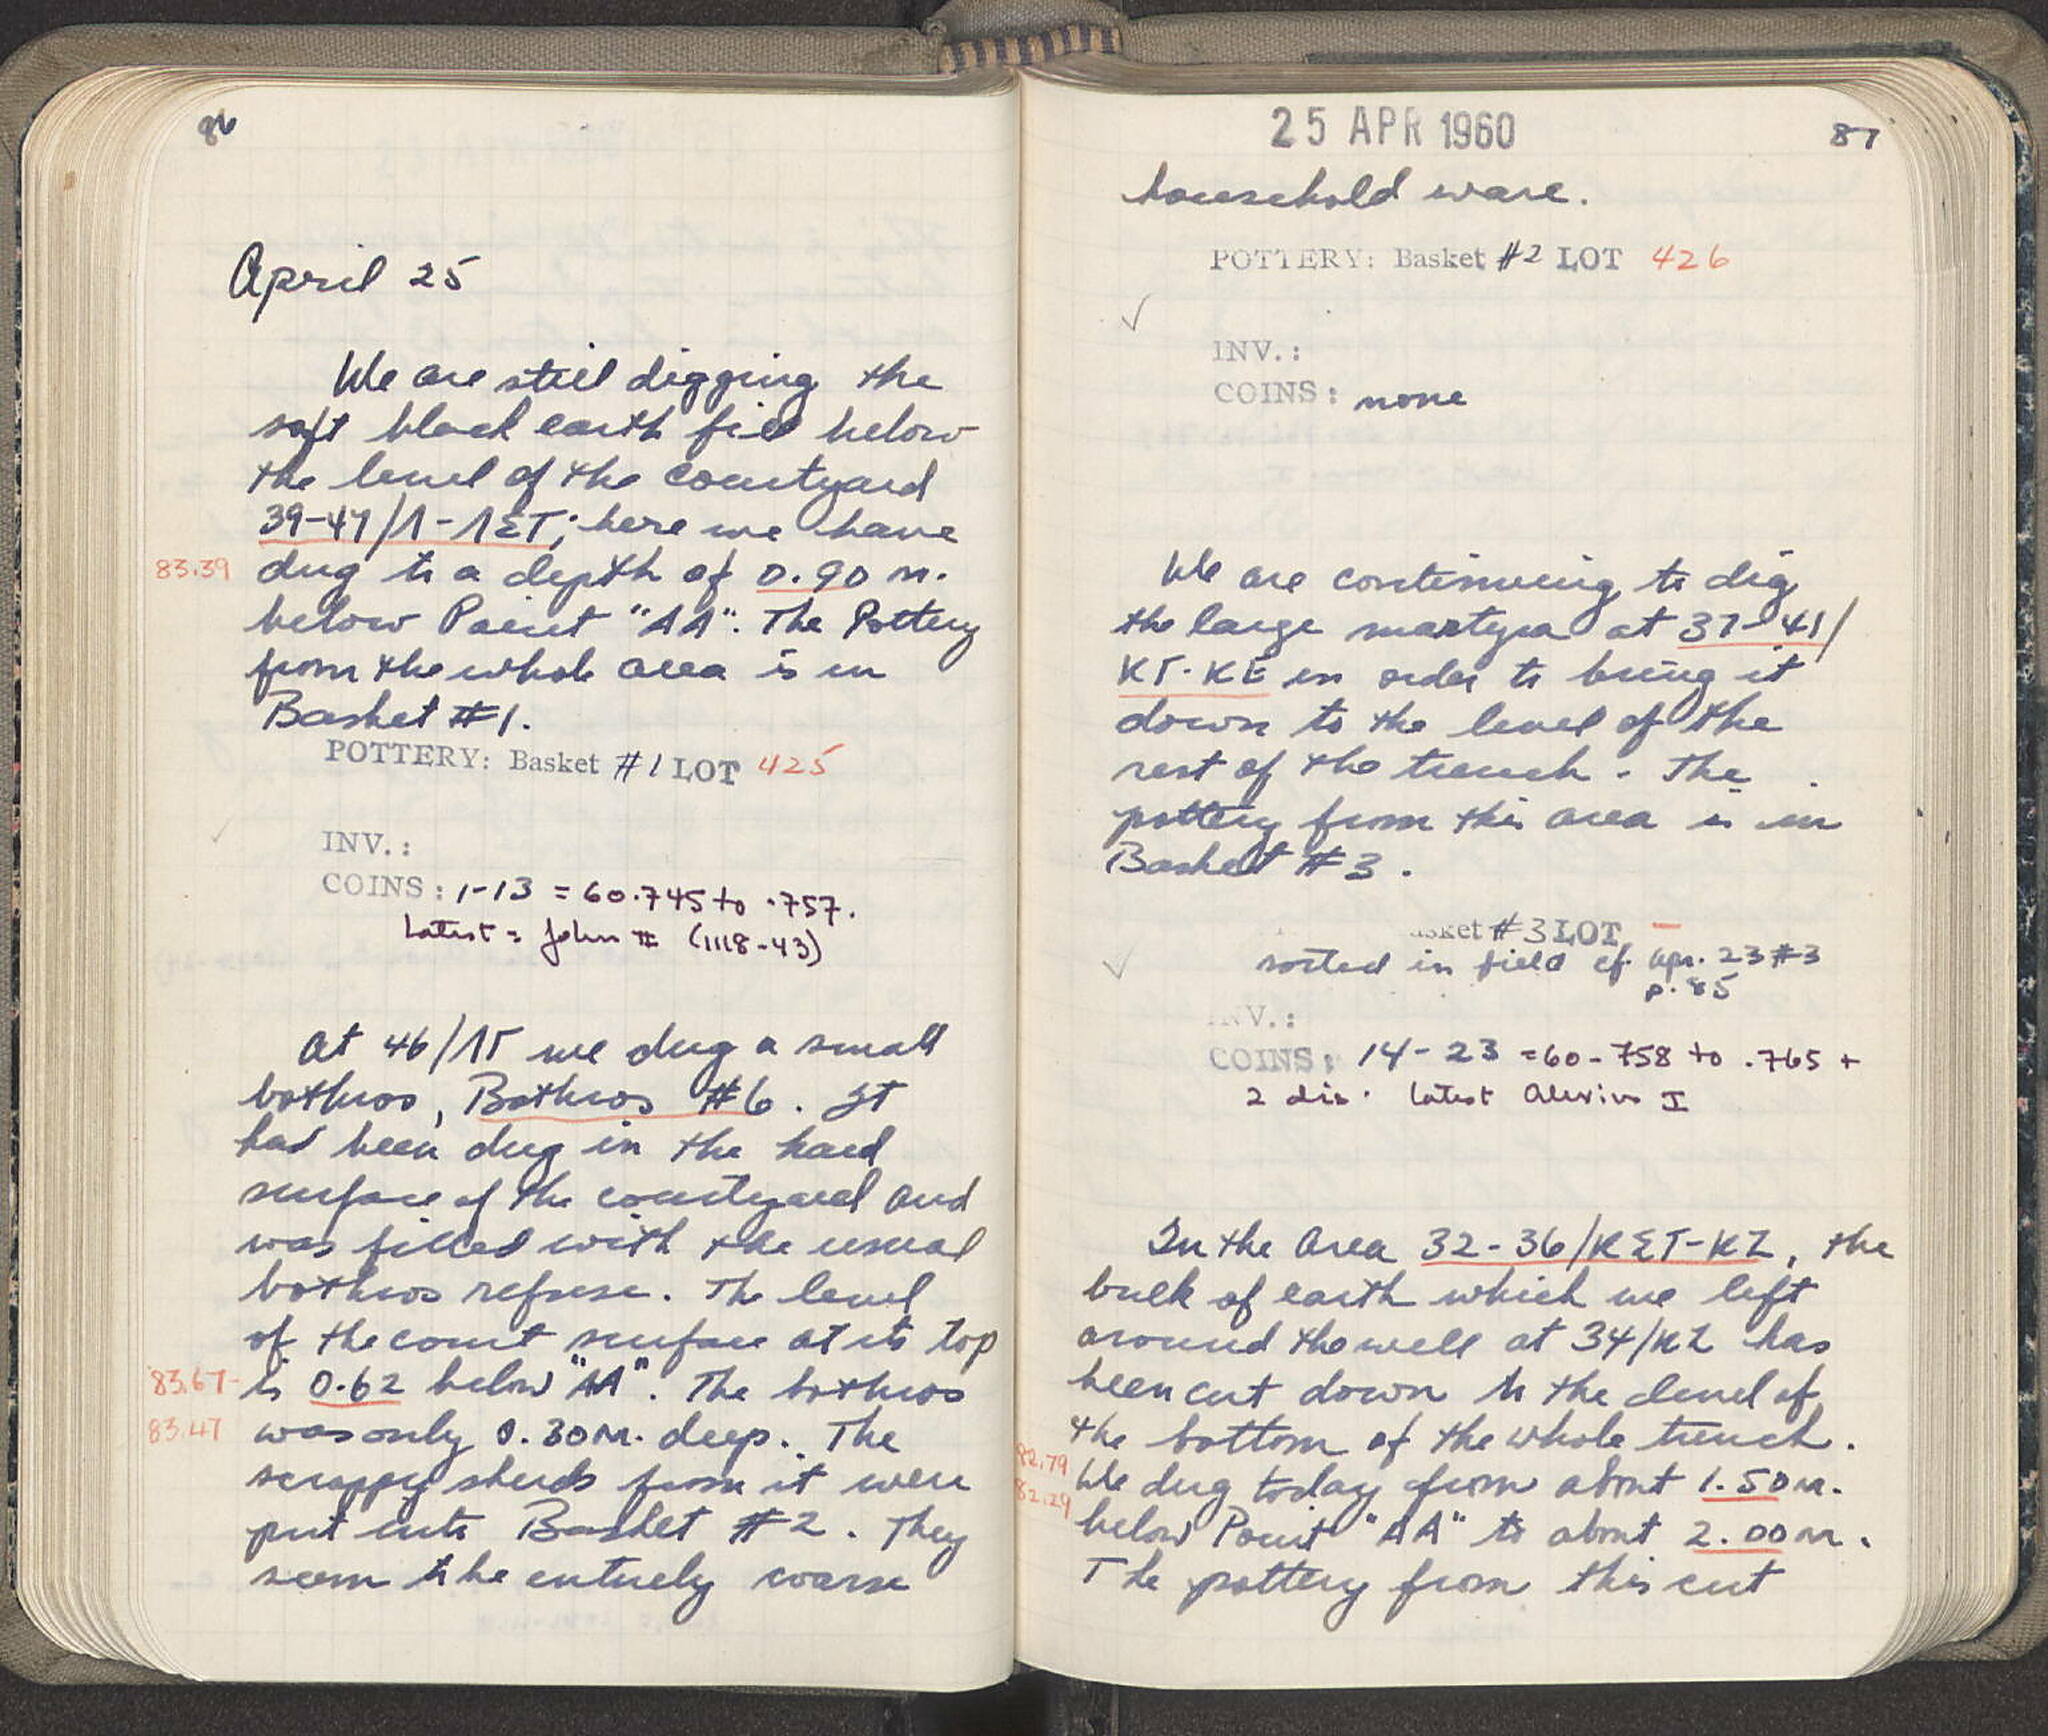 86
April 25
We are still digging the
soft black earth fill below
the level of the courtyard
39-47/Λ-ΛΣΤ; here we have
83.39 dug to a depth of 0.90 m.
below Point "AA". The Pottery
from the whole area is in
Basket #1.
POTTERY: Basket #1 LOT 425
INV.:
COINS: 1-13 = 60.745 to .757.
Latest = John II (1118-43)
At 46/ΛΓ we dug a small
bothros, Bothros #6. It
had been dug in the hard
surface of the courtyard and
was filled with the usual
bothros refuse. The level
of the court surface at its top
83.67- is 0.62 below "AA". The bothros
83.47 was only 0.30 m. deep. The
scrappy sherds from it were
put into Basket #2. They
seem to be entirely coarse
25 APR 1960
87
household ware.
POTTERY: Basket #2 LOT 426
INV.:
COINS: none
We are continuing to dig
the large martyra at 37-41/
ΚΓ-ΚΕ in order to bring it
down to the level of the
rest of the trench. The
pottery from this area is in
Basket #3.
asket #3 LOT —
sorted in field cf. Apr. 23 #3
p. 85
NV.:
COINS: 14-23 = 60-758 to .765 +
2 dis. Latest Alexius I
In the Area 32-36/ΚΣΤ-ΚΖ, the
bulk of earth which we left
around the well at 34/ΚΖ has
been cut down to the level of
the bottom of the whole trench.
82.79 We dug today from about 1.50 m.
82.29 below Point "AA" to about 2.00 m.
The pottery from this cut